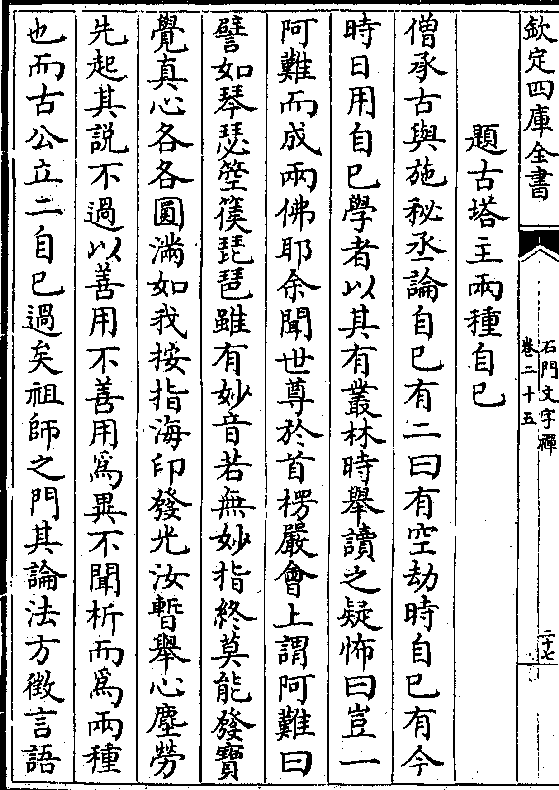 欽定四庫全書
石門文字禪
卷二十五
二十七
題古塔主兩種自已
僧承古與施秘丞論自已有二曰有空劫時自已有今
時日用自已學者以其有叢林時舉讀之疑怖曰豈一
阿難而成兩佛耶余聞世尊於首楞嚴會上謂阿難曰
譬如琴瑟箜篌琵琶雖有妙音若無妙指終莫能發寶
覺真心各各圓滿如我按指海印發光汝暫舉心塵勞
先起其説不過以善用不善用為異不聞析而為兩種
也而古公立二自已過矣祖師之門其論法方徵言語